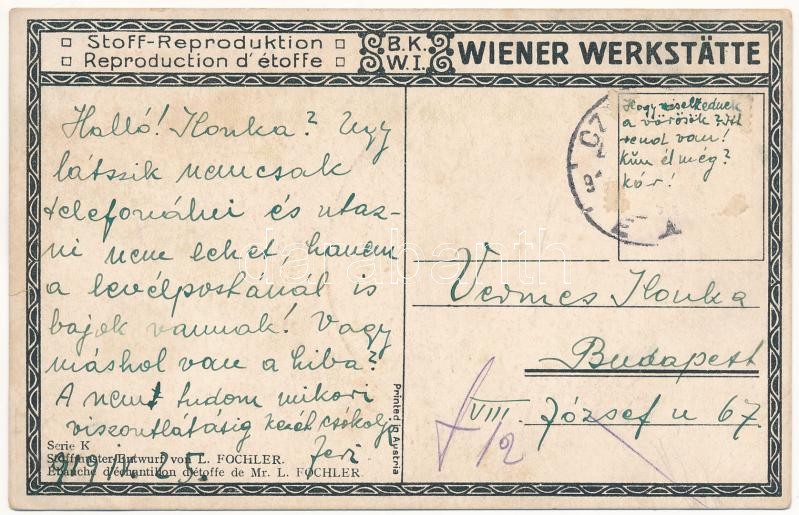 Stoff-Reproduktion
Reproduction d'étoffe
B.K.
W.I.
WIENER WERKSTÄTTE
Halló! Ilonka? Ugy
látszik nemcsak
telefonálni és utaz-
ni nem lehet, hanem
a levélpostánál is
bajok vannak! Vagy
máshol van a hiba?
A nem tudom mikori
viszontlátásig kezét csókolja
Jeri
Serie K
Stoffmuster-Entwurf von L. FOCHLER.
Branche d'échantillon d'étoffe de Mr. L. FOCHLER.
919 IV. 25.
Printed in Austria
Hogy viselkednek
a vörösök? Itt
rend van!
Kun él még?
kár!
Vermes Ilonka
Budapest
VIII. József u 67.
f 12
darabanth